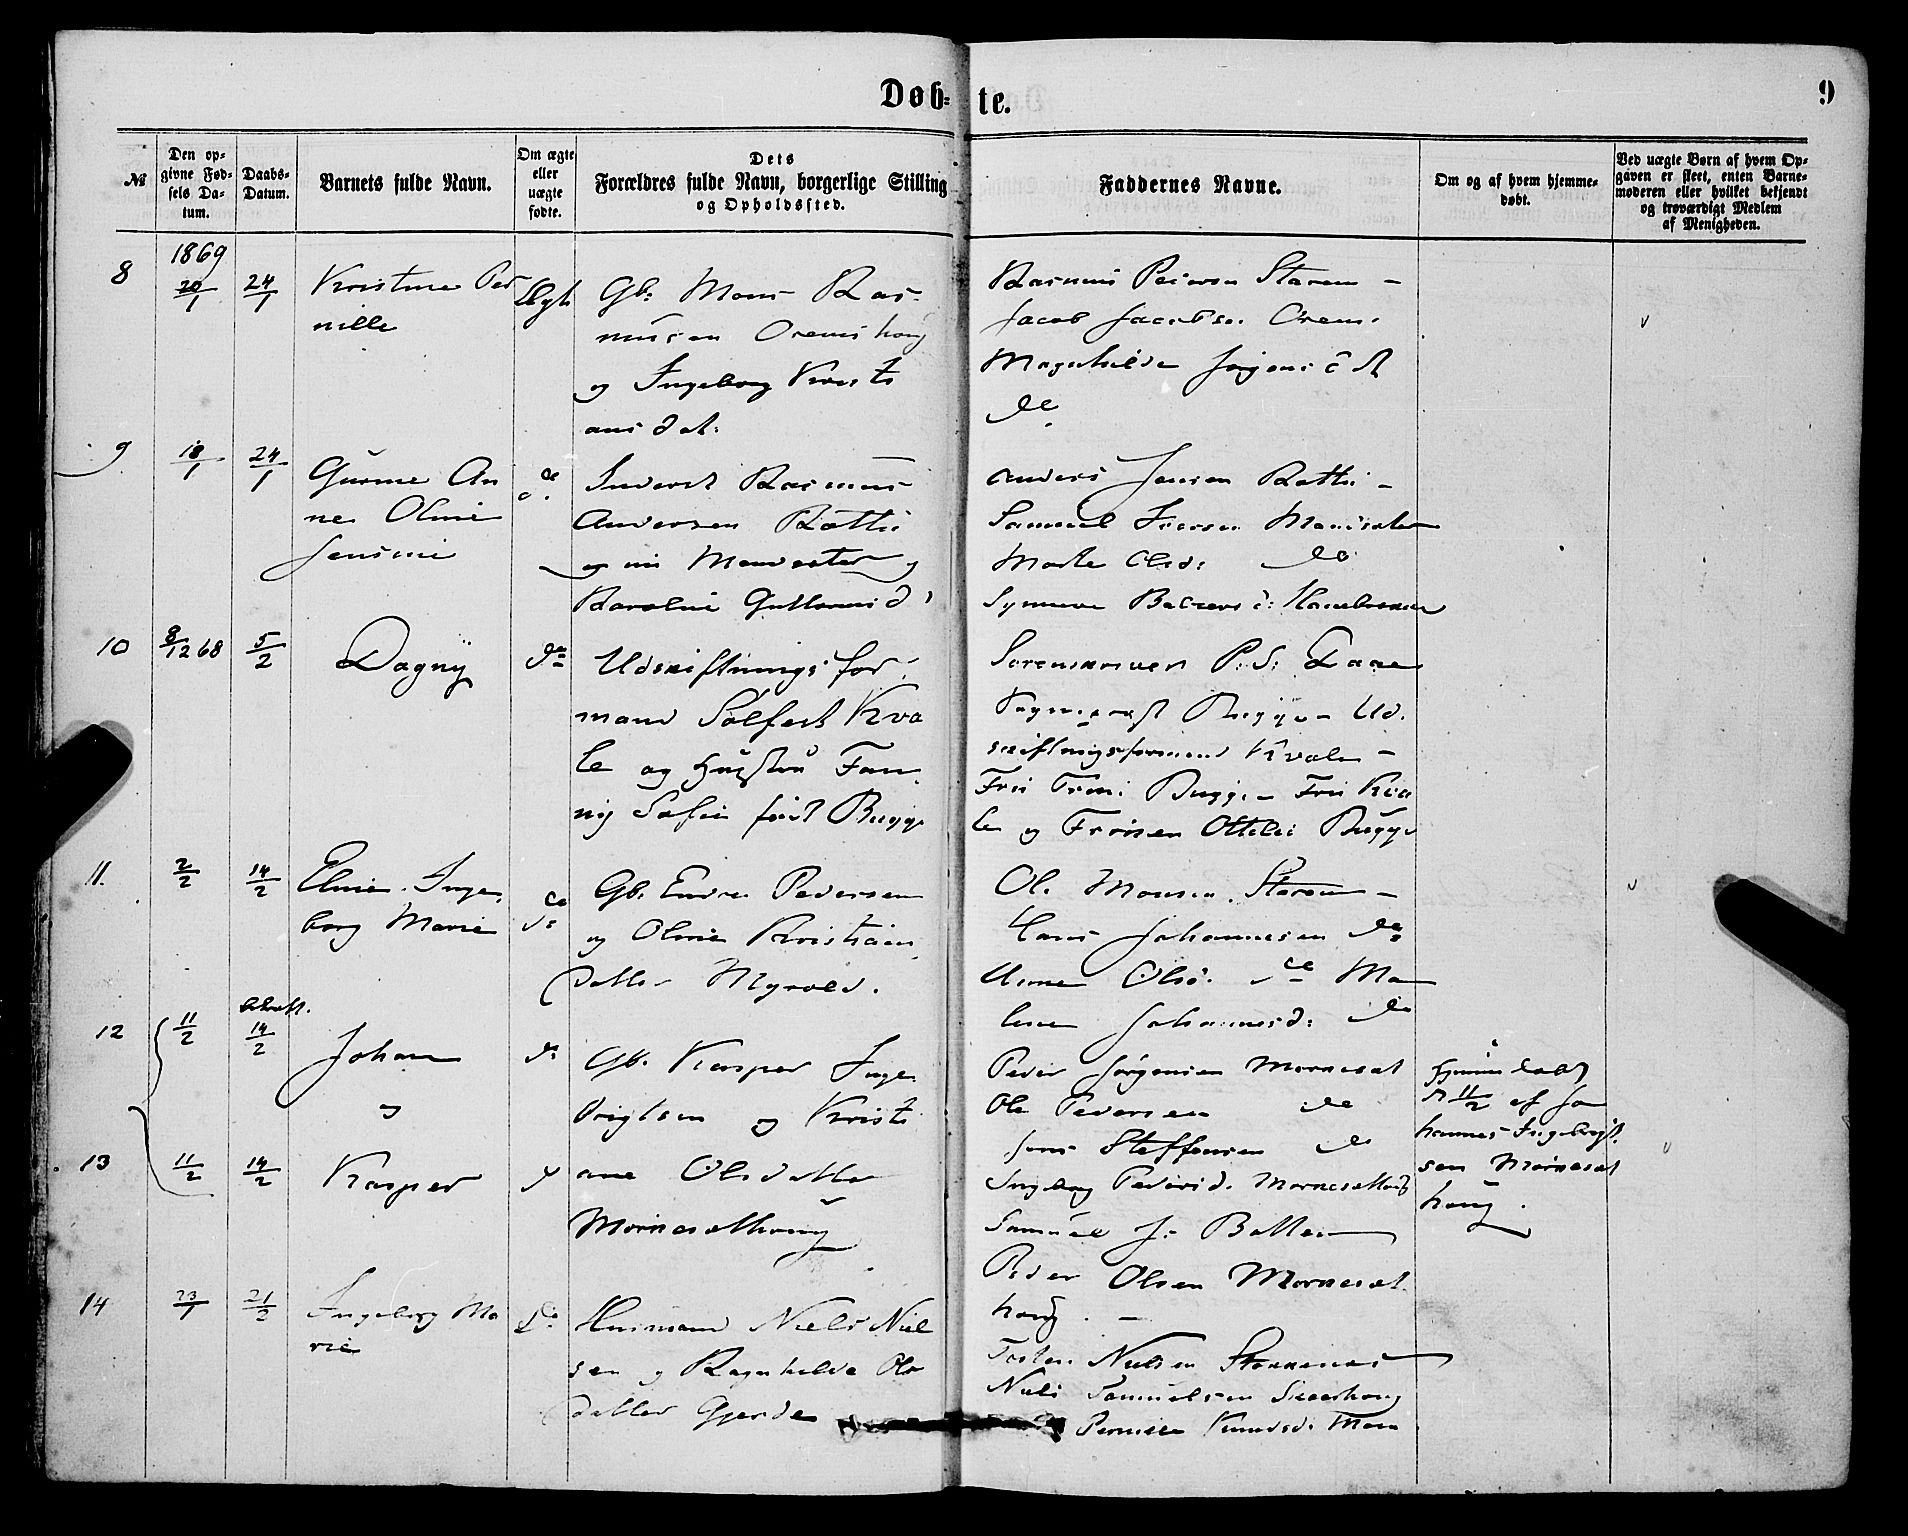 Døb-te.
9
№
Den op-
givne Fød-
sels Da-
tum.
Daabs-
Datum.
Barnets fulde Navn.
Om ægte
eller
uægte
fødte.
Dets
Forældres fulde Navn, borgerlige Stilling
og Opholdssted.
Faddernes Navne.
Om og af hvem hjemme-
døbt.
Ved uægte Børn af hvem Op-
gaven er skeet, enten Barne-
moderen eller hvilket bekjendt
og troværdigt Medlem
af Menigheden.
1869
8
20/1
24/1
Kristine Per
nille
Ægte
Gb: Mons Ras-
mussen Oremshaug
og Ingeborg Kristi
ansdat:
Rasmus Peterson Starem -
Jacob Jacobsen Orem:
Magnhilde
do
9
18/1
24/1
Gurine An
ne Oline
Jensine
do
Inderst Rasmus
Andersen
og
Karoline Guttormsd:
Anders Jensen
Samuel Iversen
Marte Olsd: do
Synneve
10
8/12 68
5/2
Dagny
do
Udskiftningsfor-
mand Solfest Kva
le og Hustru Fan
ny Sofie født Bugge
Sorenskriver P: S: Daae
Bugge - Ud-
skiftningsformand Kvale -
Fru Bugge - Fru Kva
le og Frøken Ottilie Bugge
11.
2/2
14/2
Eline Inge-
borg Marie
do
Gb: Endre Pedersen
og Oline Kristian
datter Myrvold.
Ole Monsen Starem -
Hans Johannesen do
Anne Olsd: do Ma
lene Johannesd: do
12
11/2
bekræft.
14/2
Johan
og
do
Gb: Kasper Inge
brigtsen og Kristi
ane Olsdatter
Morkesethaug
Peder Jørgensen
Ole Pedersen do
Jens Steffensen do
Ingeborg Pedersd:
Samuel J:
Peder Olsen
haug. -
Hjemmedøbt
d 11/2 af Jo
hannes Ingebrigt-
sen
haug.
13
11/2
14/2
Kasper
d
14
23/1
21/2
Ingeborg Ma
rie
do
Husmand Niels Niel
sen og Ragnhilde Ols
datter Gjerde
Nielsen
Niels Samuelsen
Pernille Knudsd: